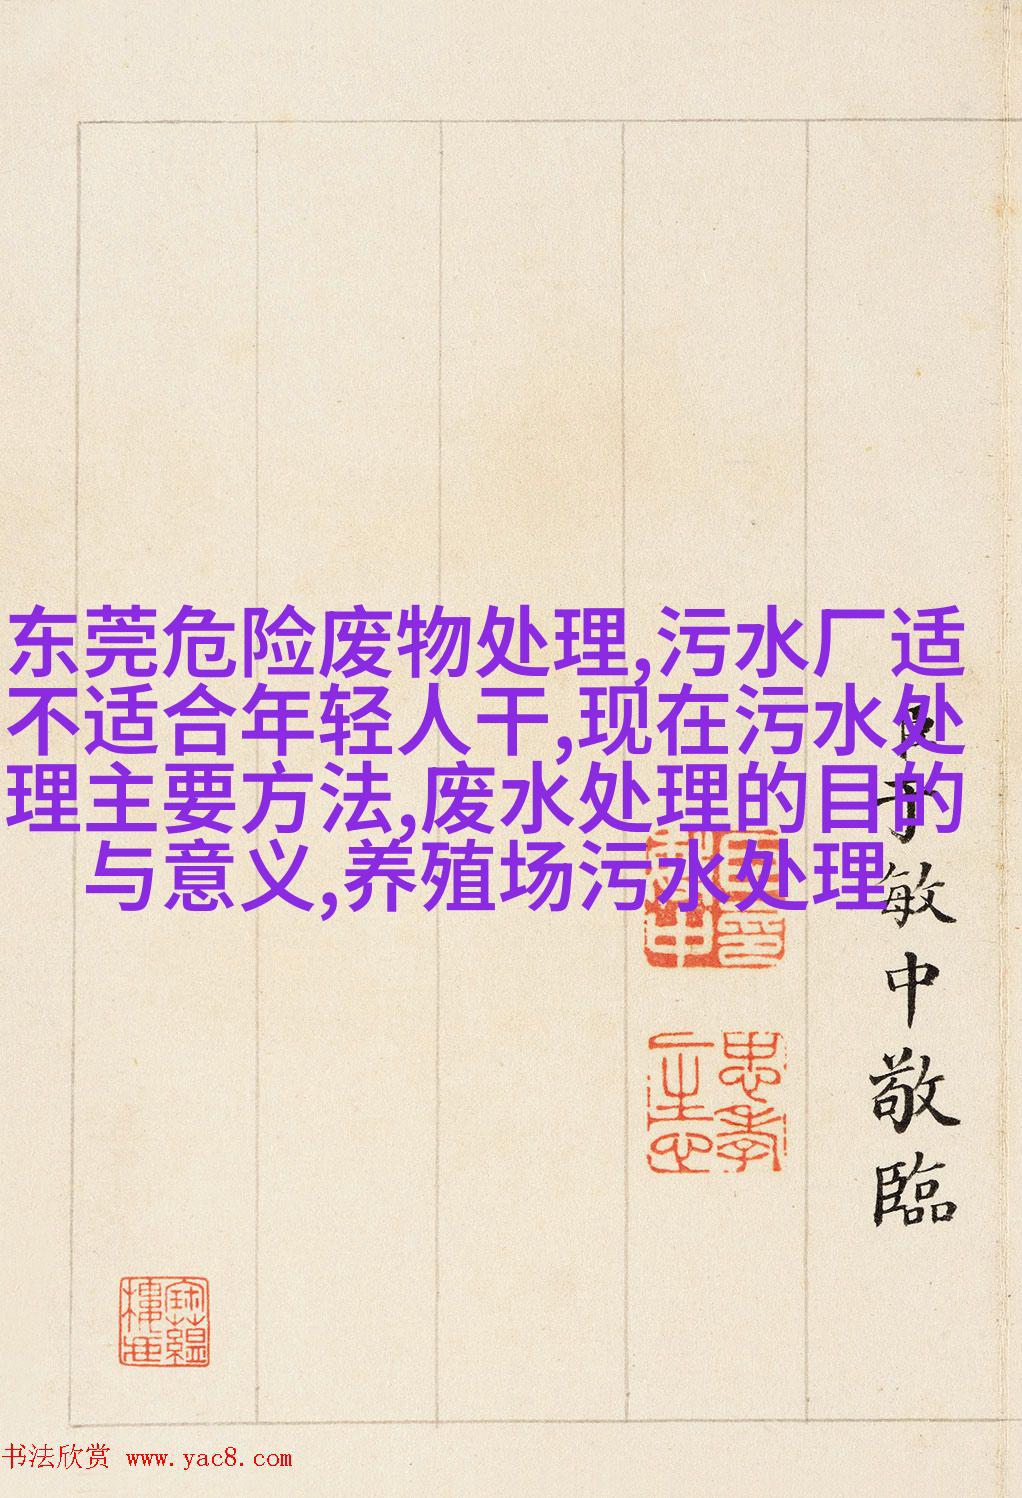 东莞危险废物处理,污水厂适
不适合年轻人干,现在污水处
理主要方法,废水处理的目的
与意义,养殖场污水处理
臣于敏中敬臨
忠孝
之志
寶蘊
樓藏
书法欣赏 www.yac8.com